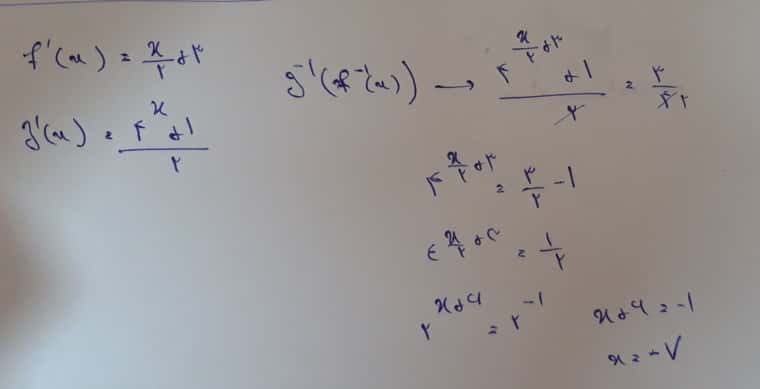 f⁻¹(x) = x/۲ + ۳
g⁻¹(x) = (۴^x + ۱)/۲
g⁻¹(f⁻¹(x)) → (۴^(x/۲ + ۳) + ۱)/۲ = ۳/۴ ۲
۴^(x/۲ + ۳) = ۳/۲ - ۱
۴^(x/۲ + ۳) = ۱/۲
۲^(x + ۶) = ۲^-۱
x + ۶ = -۱
x = -۷